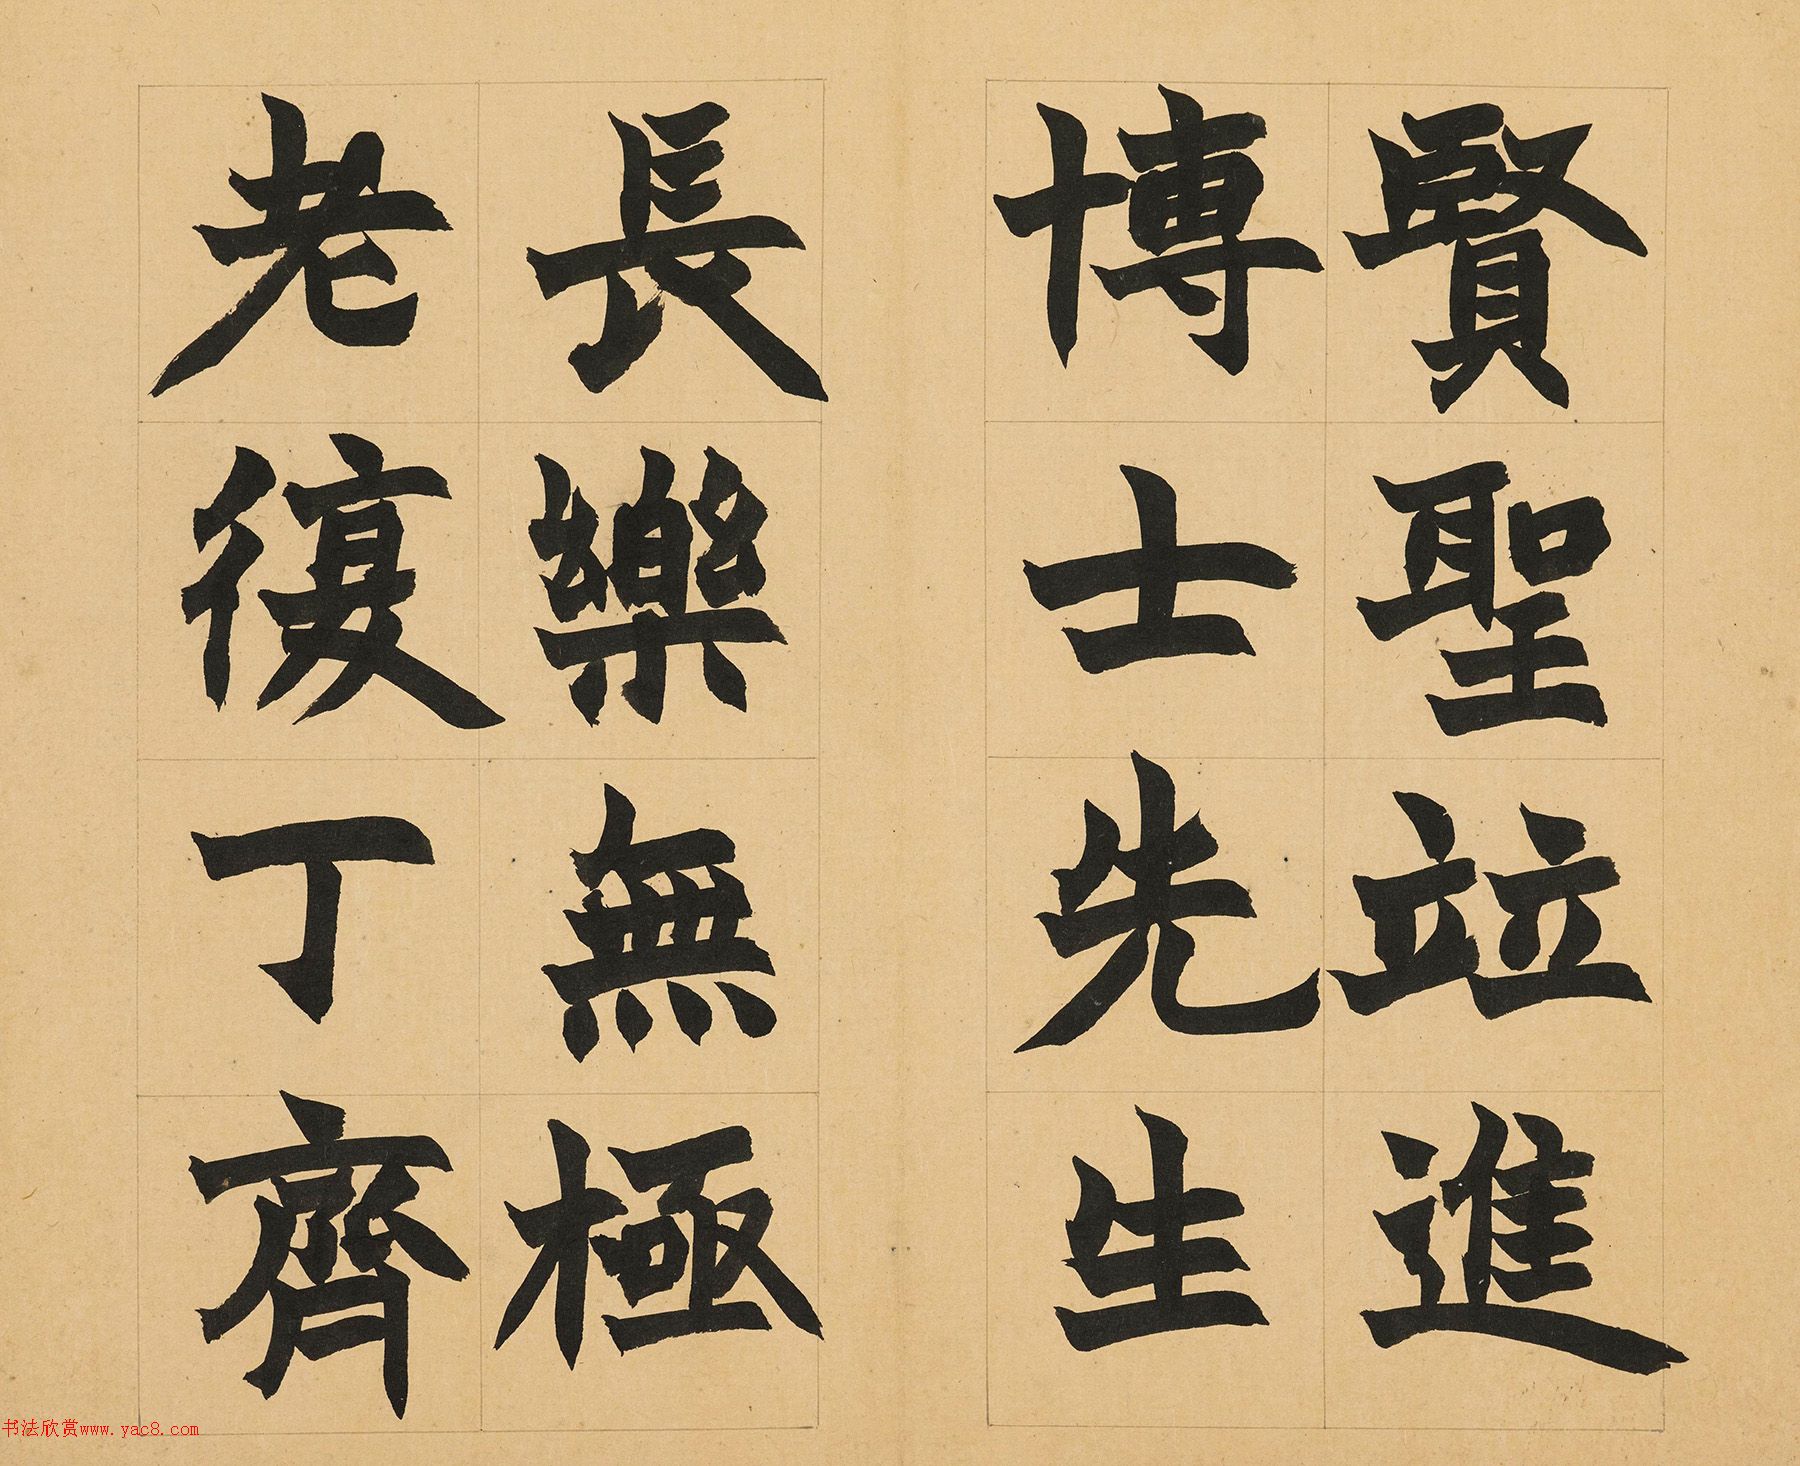 賢聖竝進
博士先生
長樂無極
老復丁齊
书法欣赏www.yac8.com